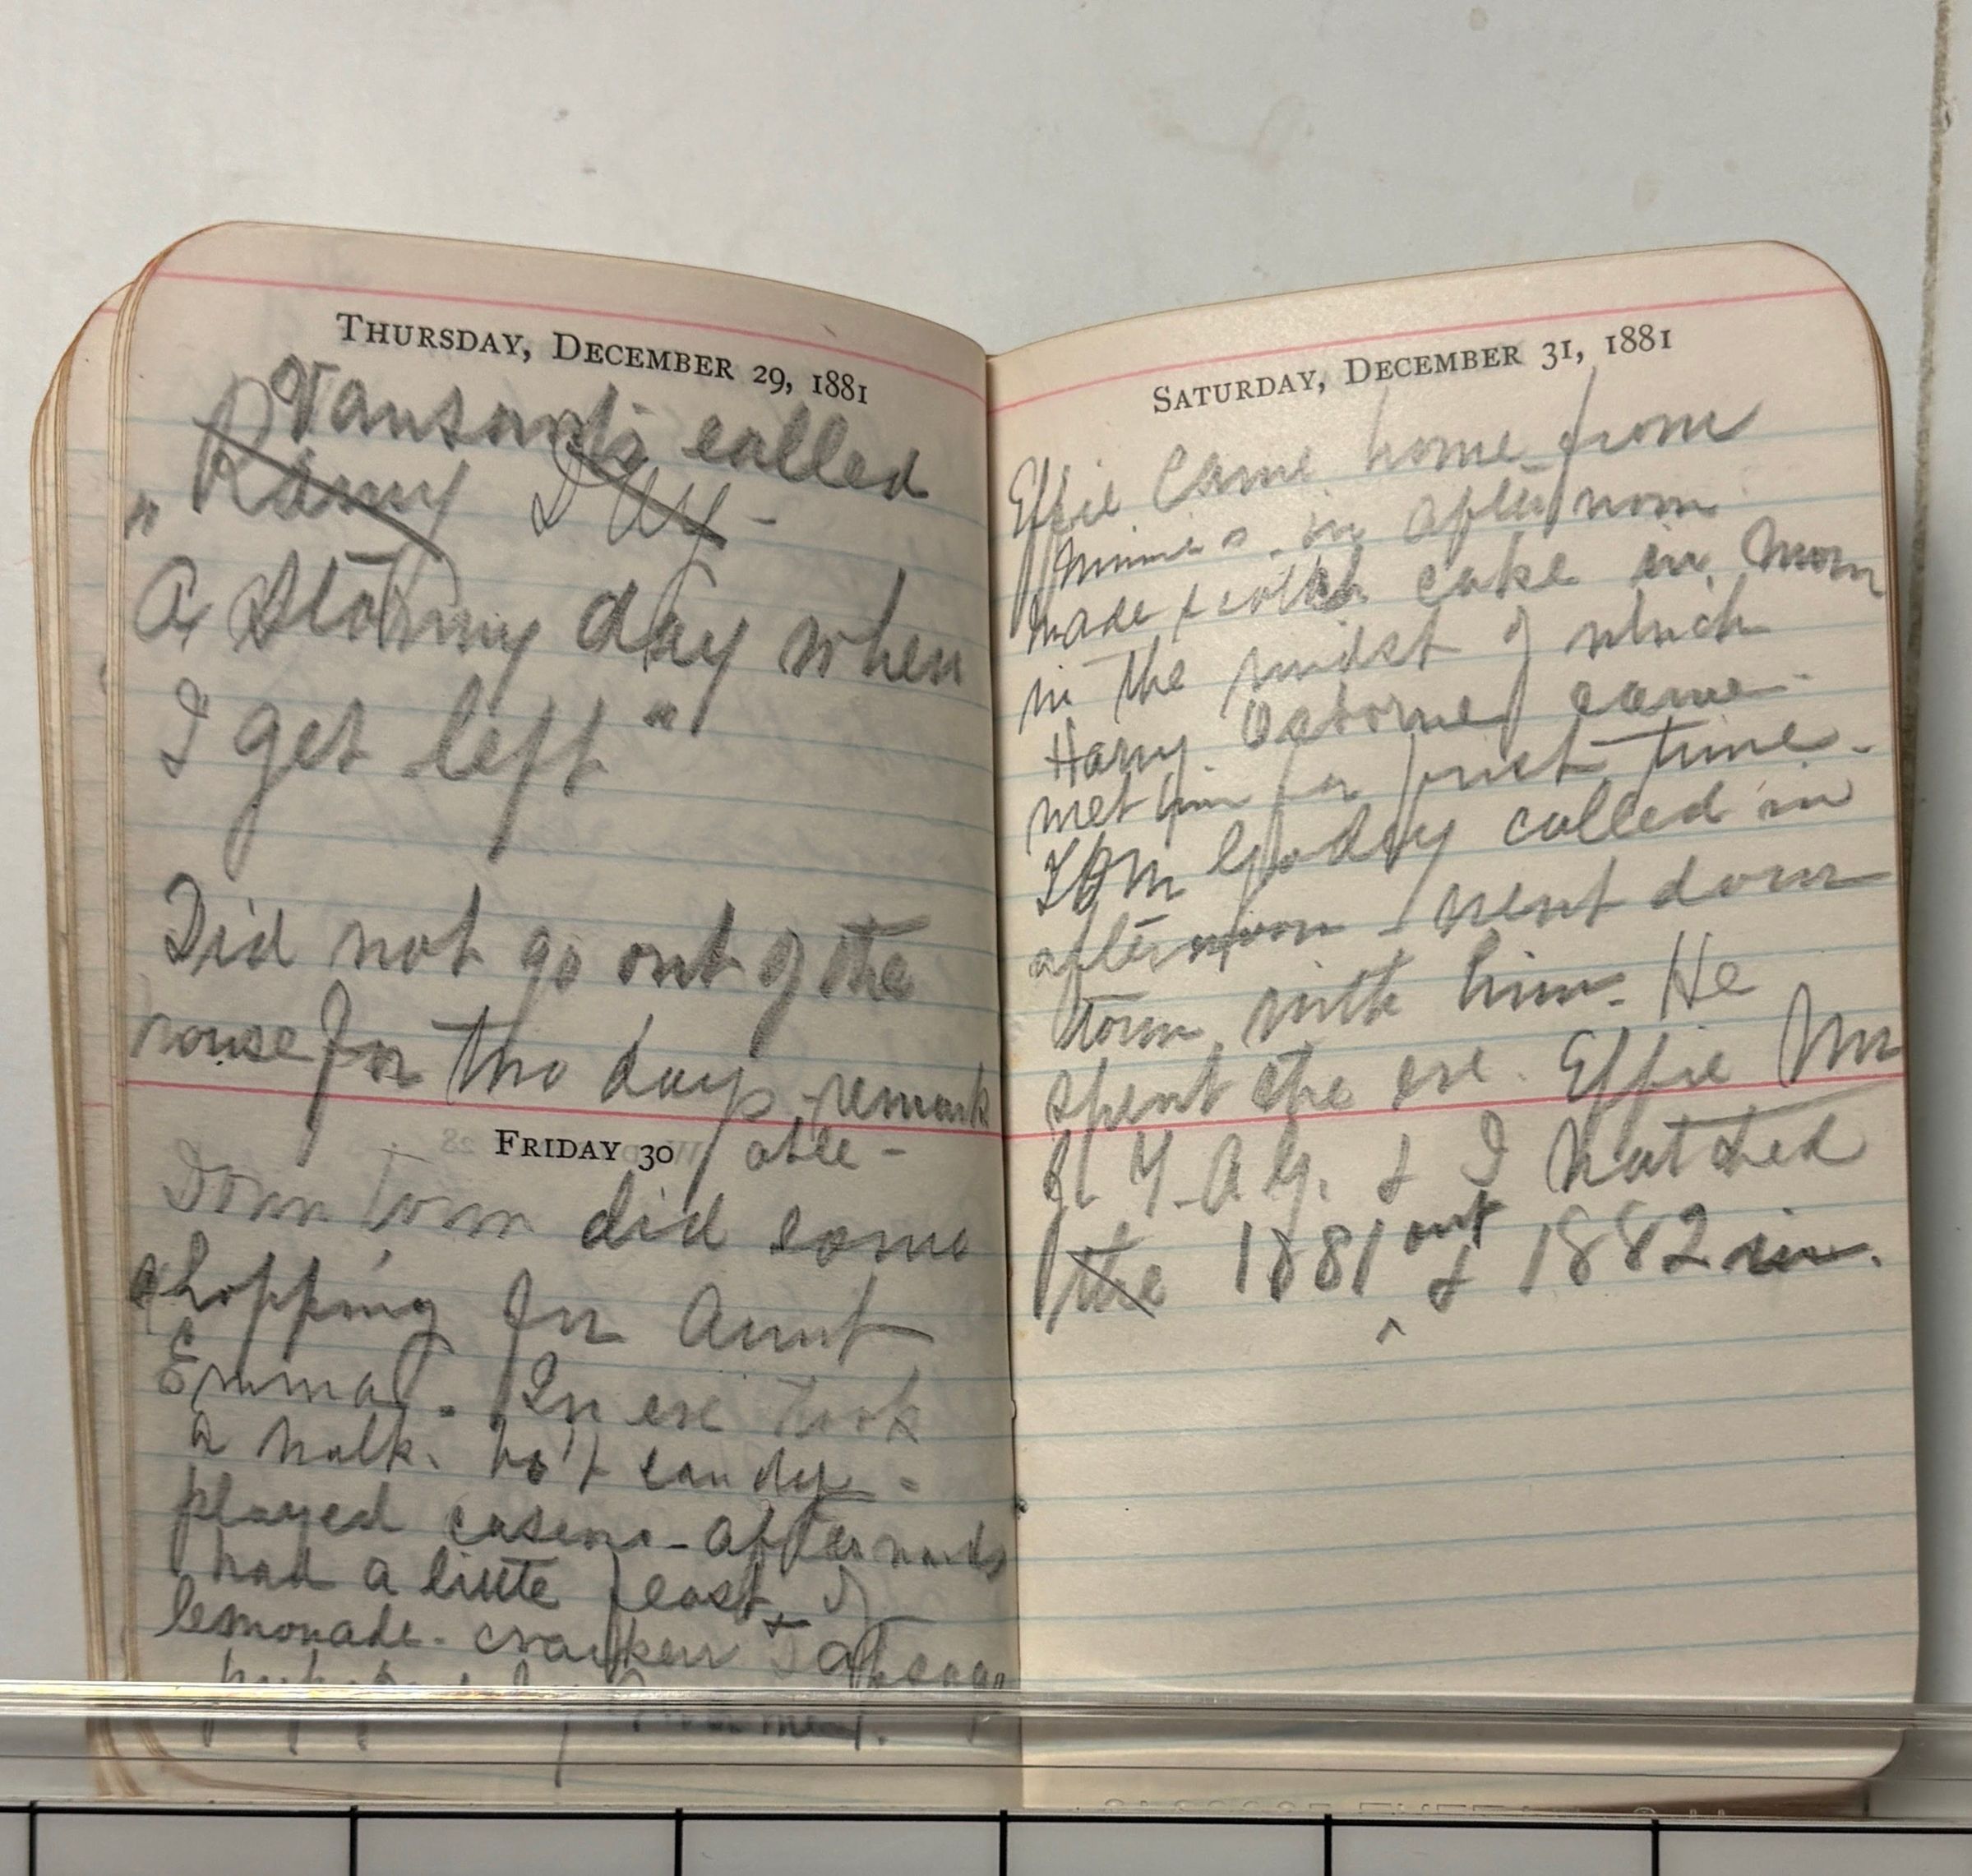 THURSDAY, DECEMBER 29, 1881
Vansants called
" Rainy Day -
A Stormy day when
I get left "
Did not go out of the
house for two days remark
able -
FRIDAY 30
Down town did some
shopping for Aunt
Emma. In eve took
a walk. bo't candy -
played casino - afterwards
had a little feast of
lemonade - crackers +
by
SATURDAY, DECEMBER 31, 1881
Effie came home from
Minnie's in afternoon
made cake in morn
in the midst of which
Harry Osborne came -
met him for first time.
Tom Goday called in
afternoon - I went down
town with him. He
spent the eve. Effie Mr
H. Y. A. G. & I watched
the 1881 out & 1882 in.